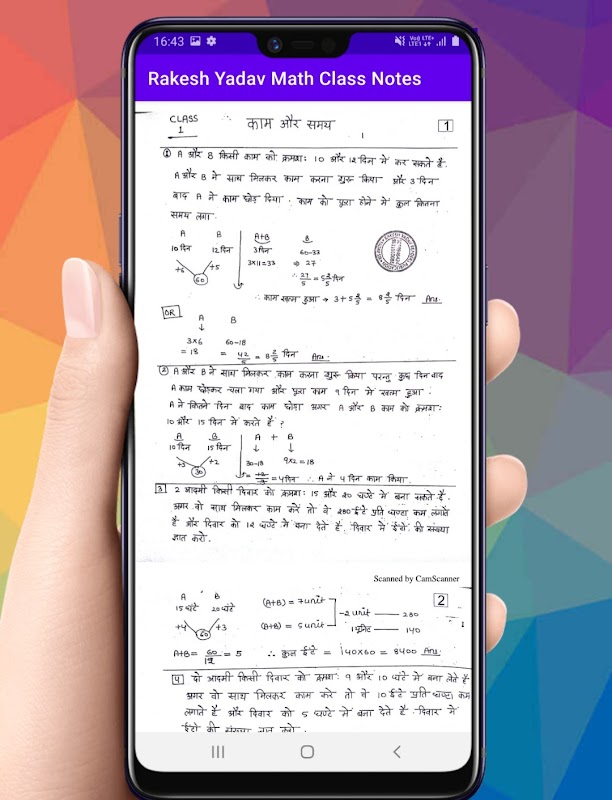 16:43
Vo)) LTE+
LTE1
Rakesh Yadav Math Class Notes
CLASS
1
काम और समय
1
① A और B किसी काम को क्रमश: 10 और 12 दिन में कर सकते है.
A और B ने साथ मिलकर काम करना शुरू किया और 3 दिन
बाद A ने काम छोड़ दिया. काम को पुरा होने में कुल कितना
समय लगा.
A B A+B B
10 दिन 12 दिन 3 दिन 60-33
+6 +5 3x11=33 ⇒ 27
60 ∴ 27/5 = 5 2/5 दिन
∴ काम खत्म हुआ → 3+5 2/5 = 8 2/5 दिन Ans.
OR
A B
↓
3x6 60-18
= 18 = 42/5 = 8 2/5 दिन Ans.
② A और B ने साथ मिलकर काम करना शुरू किया परन्तु कुछ दिन बाद
A काम छोड़कर चला गया और पुरा काम 9 दिन में खत्म हुआ.
A ने कितने दिन बाद काम छोड़ा अगर A और B काम को क्रमश:
10 और 15 दिन में करते है ?
A B A + B
10 दिन 15 दिन ↓ ↓
+3 +2 30-18 9x2=18
30 = 4 दिन ∴ A ने 4 दिन काम किया.
3 2 आदमी किसी दिवार को क्रमश: 15 और 20 घण्टे में बना सकते है.
अगर वो साथ मिलकर काम करें तो वे 280 ईंटे प्रति घण्टा कम लगाते
है और दिवार को 12 घण्टे में बना देते है. दिवार में ईंटो की संख्या
ज्ञात करो.
Scanned by CamScanner
2
A B (A+B) = 7 unit
15 घंटे 20 घंटे -2 unit — 280
+4 +3 (A+B) = 5 unit 1 यूनिट — 140
60
A+B = 60/12 = 5 ∴ कुल ईंटे = 140x60 = 8400 Ans.
4 दो आदमी किसी दिवार को क्रमश: 9 और 10 घंटे में बना लेते है
अगर वो साथ मिलकर काम करे तो वे 10 ईंटे प्रति घण्टा कम
लगाते है और दिवार को 5 घण्टे में बना देते है. दिवार में
ईंटो की संख्या ज्ञात करो.